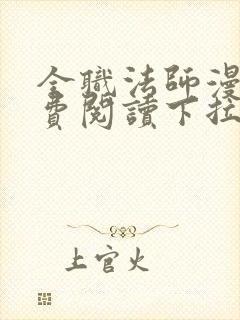 全職法師漫
費閱讀下拉
上官火